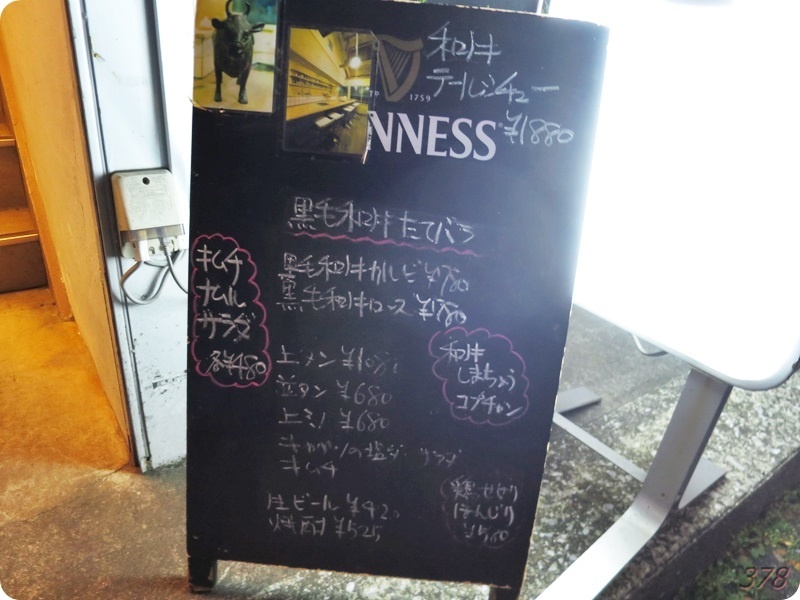 和牛
テールシチュー
¥1880
1759
NNESS
黒毛和牛たてバラ
黒毛和牛カルビ¥780
黒毛和牛ロース¥1780
キムチ
ナムル
サラダ
各¥480
和牛
しまちょう
コプチャン
上タン
並タン ¥680
上ミノ ¥680
サラダ
キムチ
生ビール ¥420
焼酎 ¥525
鶏せせり
ぼんじり
378